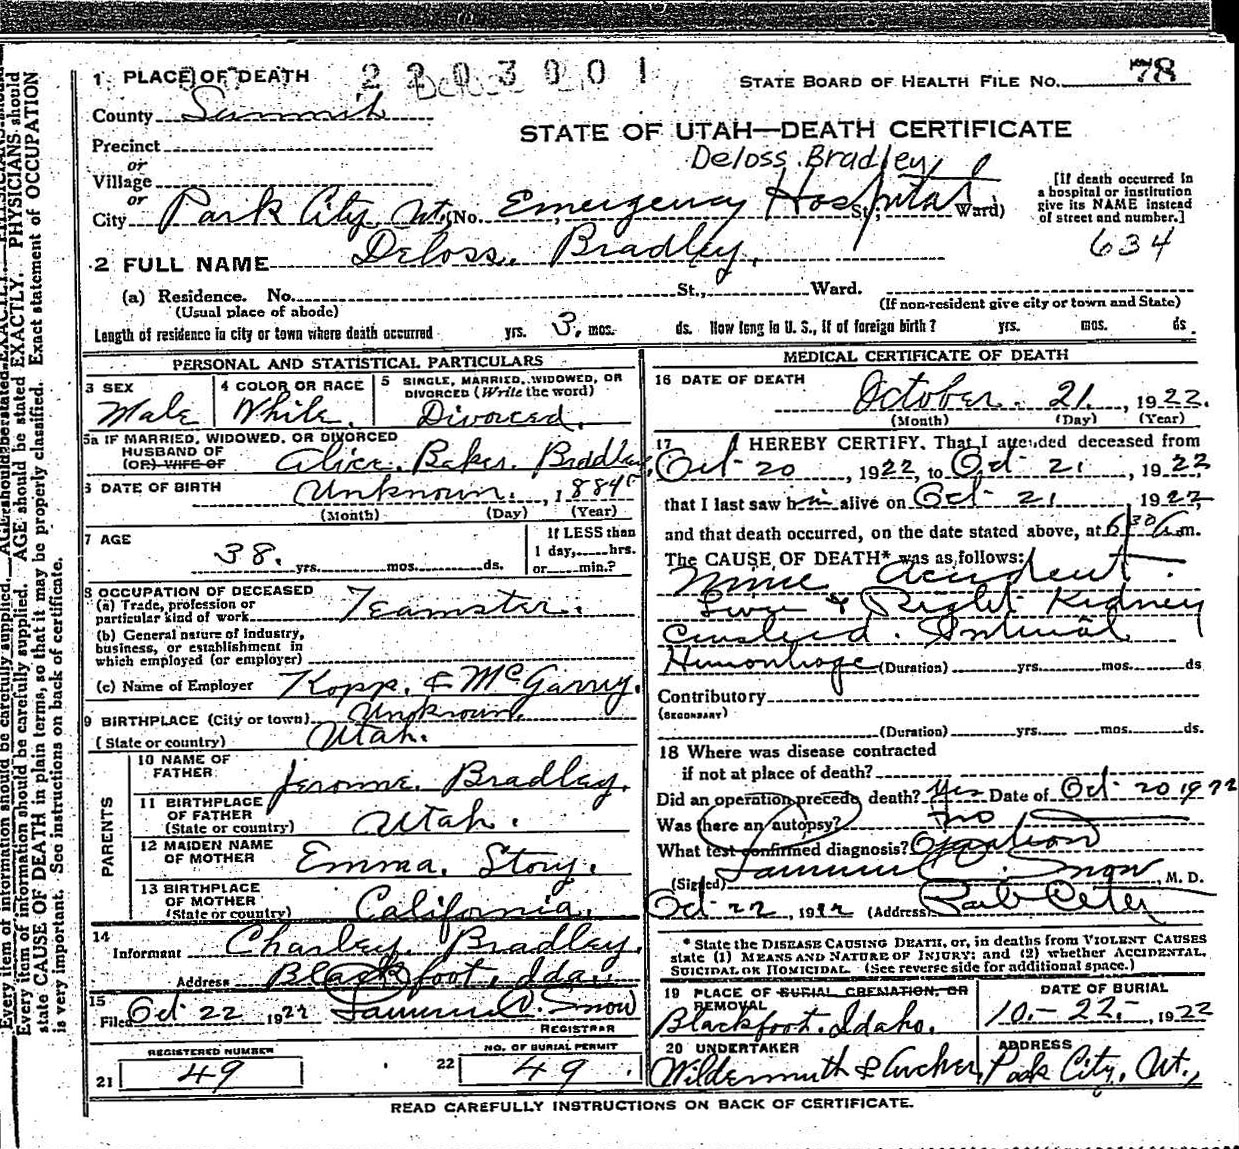 1 PLACE OF DEATH 2203001 STATE BOARD OF HEALTH FILE NO. 78
County Summit
STATE OF UTAH—DEATH CERTIFICATE
Precinct
Deloss Bradley
or
Village
or
City Park City Ut. No. Emergency Hospital St; Ward)
[If death occurred in a hospital or institution give its NAME instead of street and number.]
634
2 FULL NAME Deloss Bradley.
(a) Residence. No. St., Ward.
(Usual place of abode) (If non-resident give city or town and State)
Length of residence in city or town where death occurred yrs. 3. mos. ds. How long in U. S., if of foreign birth? yrs. mos. ds.
PERSONAL AND STATISTICAL PARTICULARS
3 SEX Male
4 COLOR OR RACE White.
5 SINGLE, MARRIED, WIDOWED, OR DIVORCED (Write the word) Divorced.
5a IF MARRIED, WIDOWED, OR DIVORCED
HUSBAND OF
(OR) WIFE OF Alice. Baker. Bradley.
6 DATE OF BIRTH Unknown. , 1884
(Month) (Day) (Year)
7 AGE 38. yrs. mos. ds. If LESS than 1 day, hrs. or min.?
8 OCCUPATION OF DECEASED
(a) Trade, profession or particular kind of work Teamster.
(b) General nature of industry, business, or establishment in which employed (or employer)
(c) Name of Employer Kopp. & McGarry.
9 BIRTHPLACE (City or town) Unknown.
(State or country) Utah.
PARENTS
10 NAME OF FATHER Jerome Bradley.
11 BIRTHPLACE OF FATHER (State or country) Utah.
12 MAIDEN NAME OF MOTHER Emma. Story.
13 BIRTHPLACE OF MOTHER (State or country) California.
14
Informant Charley. Bradley.
Address Blackfoot, Ida.
15
Filed Oct 22 1922 Snow
REGISTRAR
21 REGISTERED NUMBER 49
22 NO. OF BURIAL PERMIT 49
MEDICAL CERTIFICATE OF DEATH
16 DATE OF DEATH October. 21, 1922.
(Month) (Day) (Year)
17 I HEREBY CERTIFY, That I attended deceased from
Oct 20, 1922, to Oct 21, 1922
that I last saw him alive on Oct 21 1922,
and that death occurred, on the date stated above, at 6 30 A m.
The CAUSE OF DEATH* was as follows:
Mine accident.
Liver & Right Kidney
Crushed. Internal
Hemorrhage (Duration) yrs. mos. ds
Contributory
(SECONDARY)
(Duration) yrs. mos. ds.
18 Where was disease contracted
if not at place of death?
Did an operation precede death? Yes Date of Oct 20 1922
Was there an autopsy? No
What test confirmed diagnosis? Operation
(Signed) Snow, M. D.
Oct 22, 1922 (Address) Park City
* State the DISEASE CAUSING DEATH, or, in deaths from VIOLENT CAUSES
state (1) MEANS AND NATURE OF INJURY; and (2) whether ACCIDENTAL,
SUICIDAL OR HOMICIDAL. (See reverse side for additional space.)
19 PLACE OF BURIAL CREMATION, OR REMOVAL Blackfoot. Idaho.
DATE OF BURIAL 10.-22-, 1922
20 UNDERTAKER Wildermuth & Archer
ADDRESS Park City, Ut.,
READ CAREFULLY INSTRUCTIONS ON BACK OF CERTIFICATE.
Every item of information should be carefully supplied. AGE should be stated EXACTLY. PHYSICIANS should
state CAUSE OF DEATH in plain terms, so that it may be properly classified. Exact statement of OCCUPATION
is very important. See instructions on back of certificate.